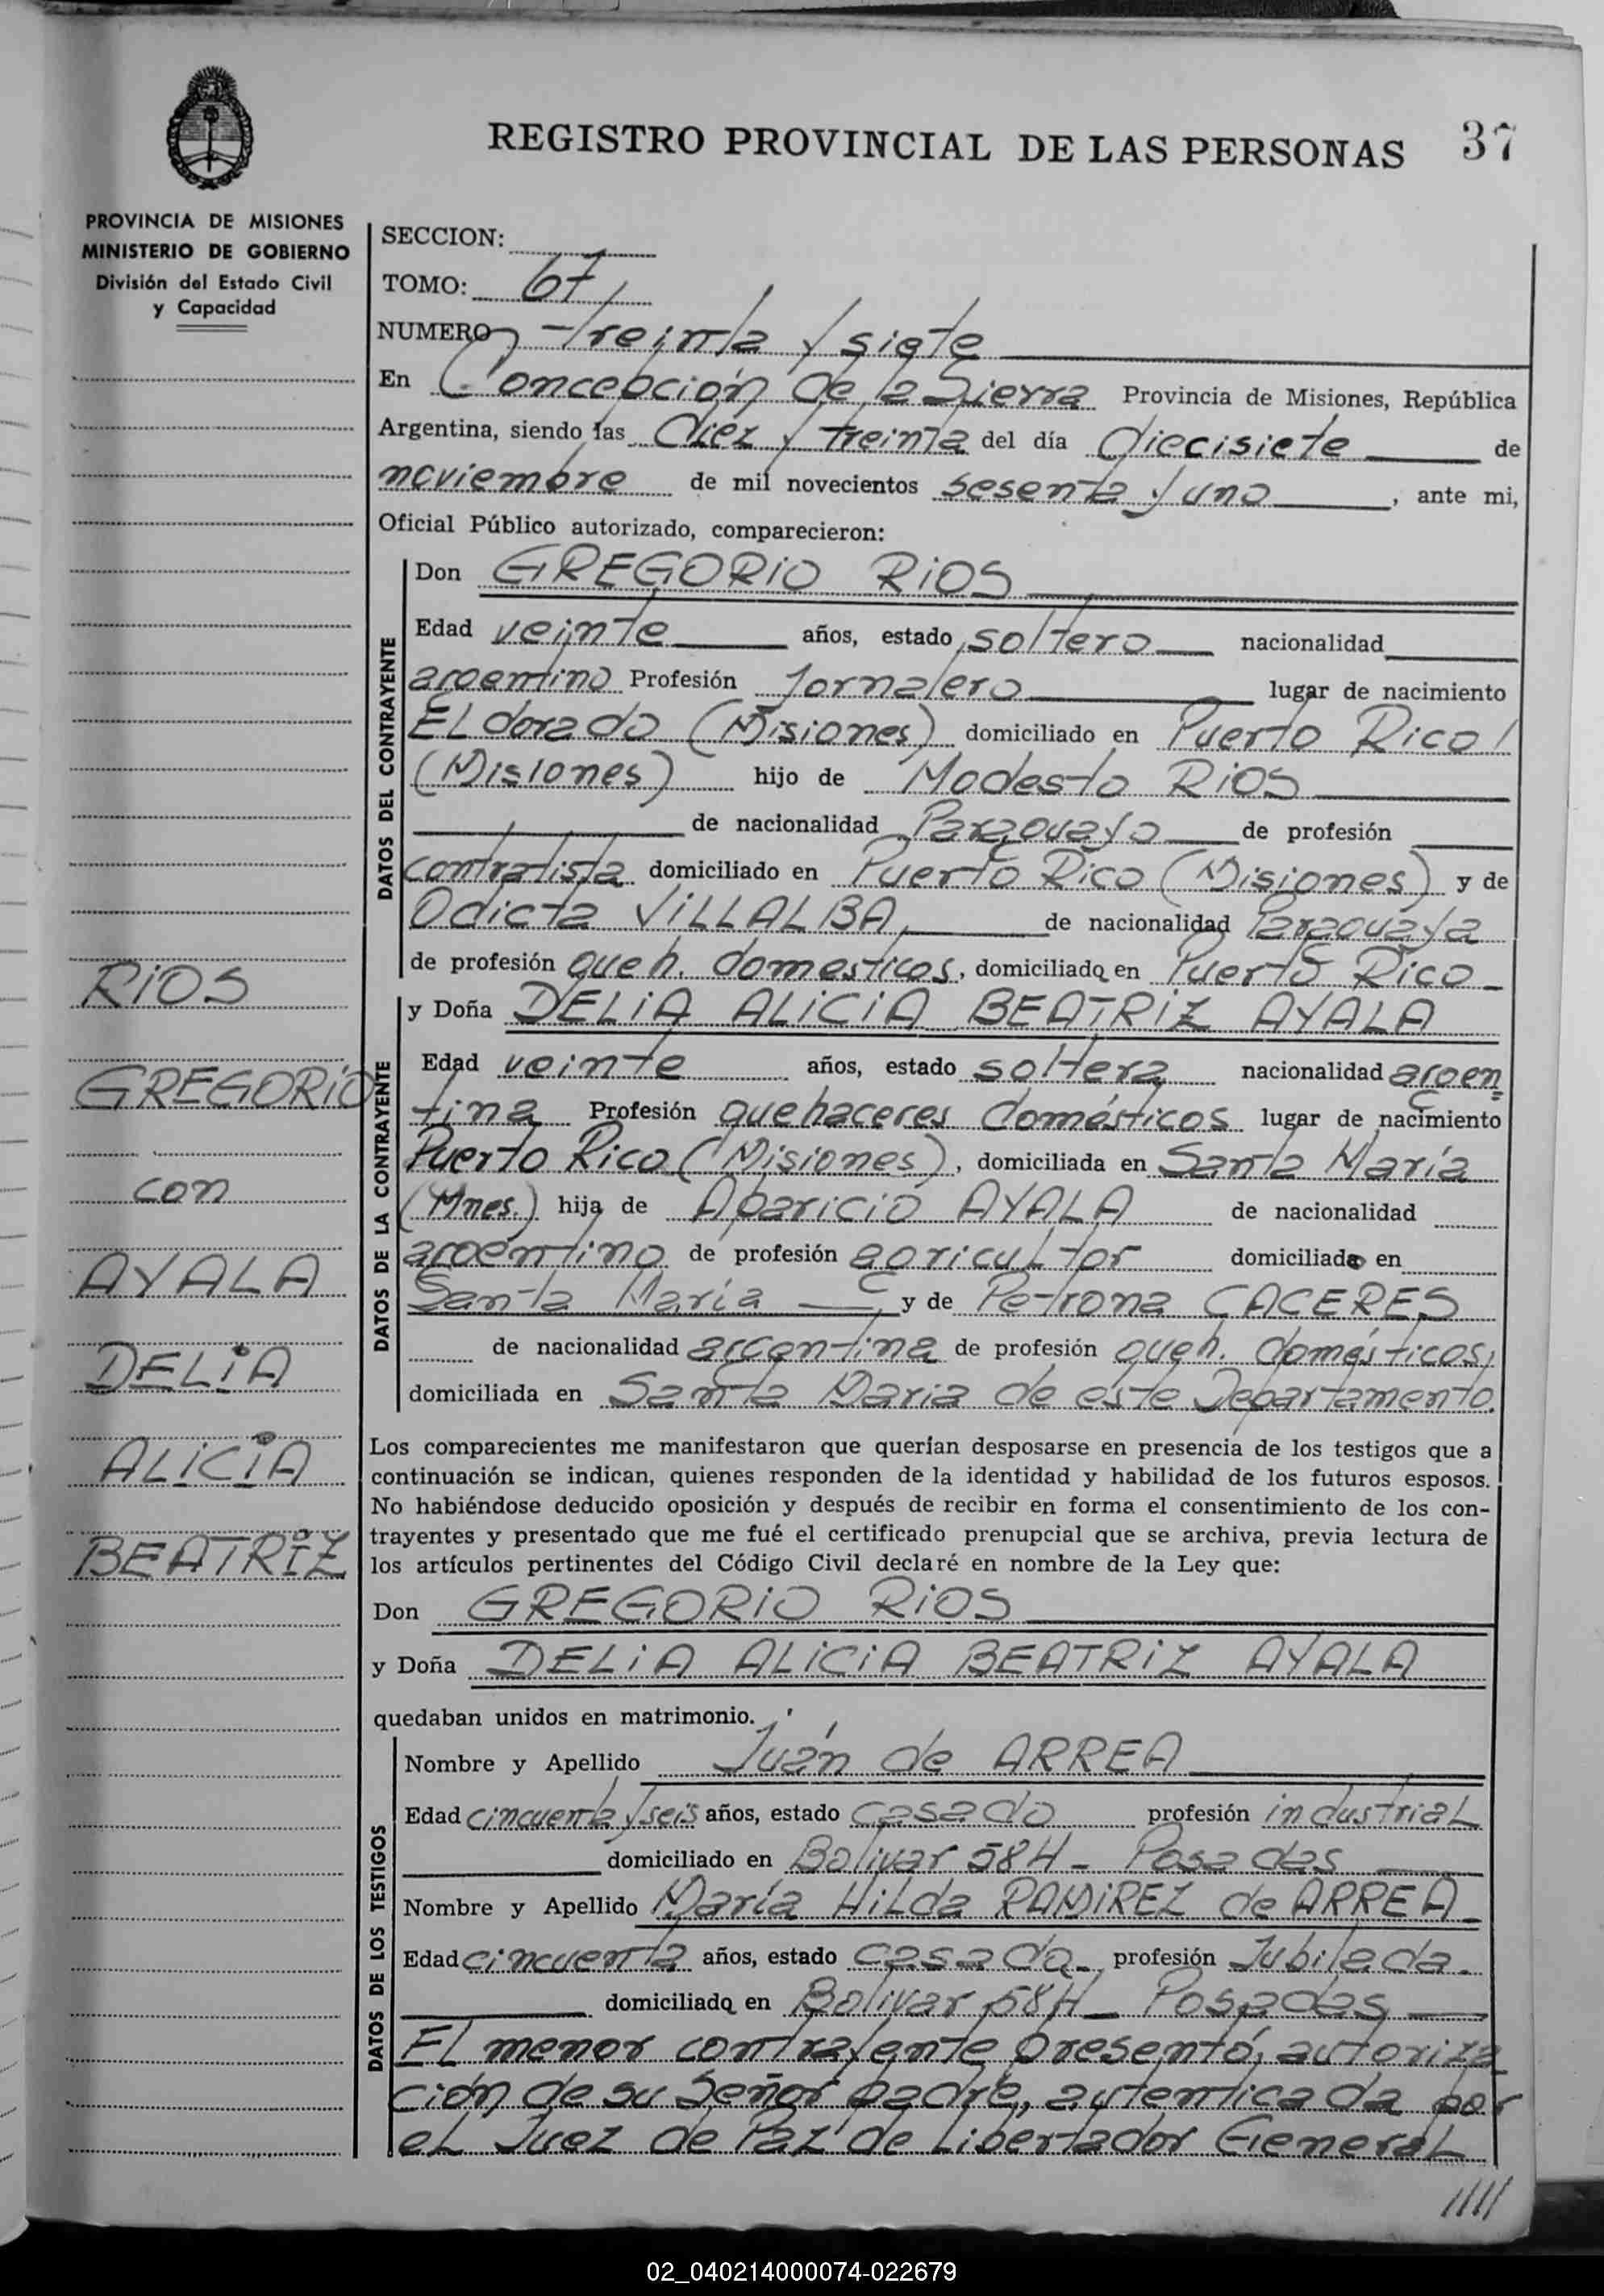 REGISTRO PROVINCIAL DE LAS PERSONAS 37
PROVINCIA DE MISIONES
MINISTERIO DE GOBIERNO
División del Estado Civil
y Capacidad
SECCION:
TOMO: 67
NUMERO treinta y siete
En Concepción de la Sierra Provincia de Misiones, República
Argentina, siendo las diez y treinta del día diecisiete de
noviembre de mil novecientos sesenta y uno, ante mi,
Oficial Público autorizado, comparecieron:
DATOS DEL CONTRAYENTE
Don GREGORIO RIOS
Edad veinte años, estado soltero nacionalidad
argentino Profesión Jornalero lugar de nacimiento
ELdorado (Misiones) domiciliado en Puerto Rico
(Misiones) hijo de Modesto RIOS
de nacionalidad Paraguayo de profesión
contratista domiciliado en Puerto Rico (Misiones) y de
Odicta VILLALBA, de nacionalidad Paraguaya
de profesión queh. domesticos, domiciliada en Puerto Rico
DATOS DE LA CONTRAYENTE
y Doña DELIA ALICIA BEATRIZ AYALA
Edad veinte años, estado soltera nacionalidad argen=
tina Profesión quehaceres domésticos lugar de nacimiento
Puerto Rico (Misiones), domiciliada en Santa María
(Mnes.) hija de Aparicio AYALA de nacionalidad
argentino de profesión agricultor domiciliado en
Santa María y de Petrona CACERES
de nacionalidad argentina de profesión queh. domésticos,
domiciliada en Santa Maria de este Departamento.
RIOS
GREGORIO
con
AYALA
DELIA
ALICIA
BEATRIZ
Los comparecientes me manifestaron que querían desposarse en presencia de los testigos que a
continuación se indican, quienes responden de la identidad y habilidad de los futuros esposos.
No habiéndose deducido oposición y después de recibir en forma el consentimiento de los con-
trayentes y presentado que me fué el certificado prenupcial que se archiva, previa lectura de
los artículos pertinentes del Código Civil declaré en nombre de la Ley que:
Don GREGORIO RIOS
y Doña DELIA ALICIA BEATRIZ AYALA
quedaban unidos en matrimonio.
DATOS DE LOS TESTIGOS
Nombre y Apellido Juan de ARREA
Edad cincuenta y seis años, estado casado profesión industrial
domiciliado en Bolivar 584 - Posadas
Nombre y Apellido María HiLda RAMIREZ de ARREA
Edad cincuenta años, estado casada profesión Jubilada.
domiciliada en Bolivar 584 - Posadas
El menor contrayente presentó, autoriza
ción de su Señor padre, autenticada por
el Juez de Paz de Libertador General
/////
02_040214000074-022679